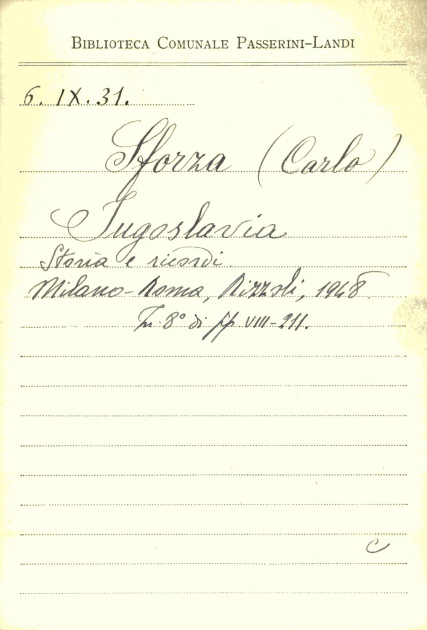 BIBLIOTECA COMUNALE PASSERINI-LANDI
6. IX. 31.
Sforza (Carlo)
Jugoslavia
Storia e ricordi
Milano-Roma, Rizzoli, 1948
In. 8° di pp VIII-211.
C